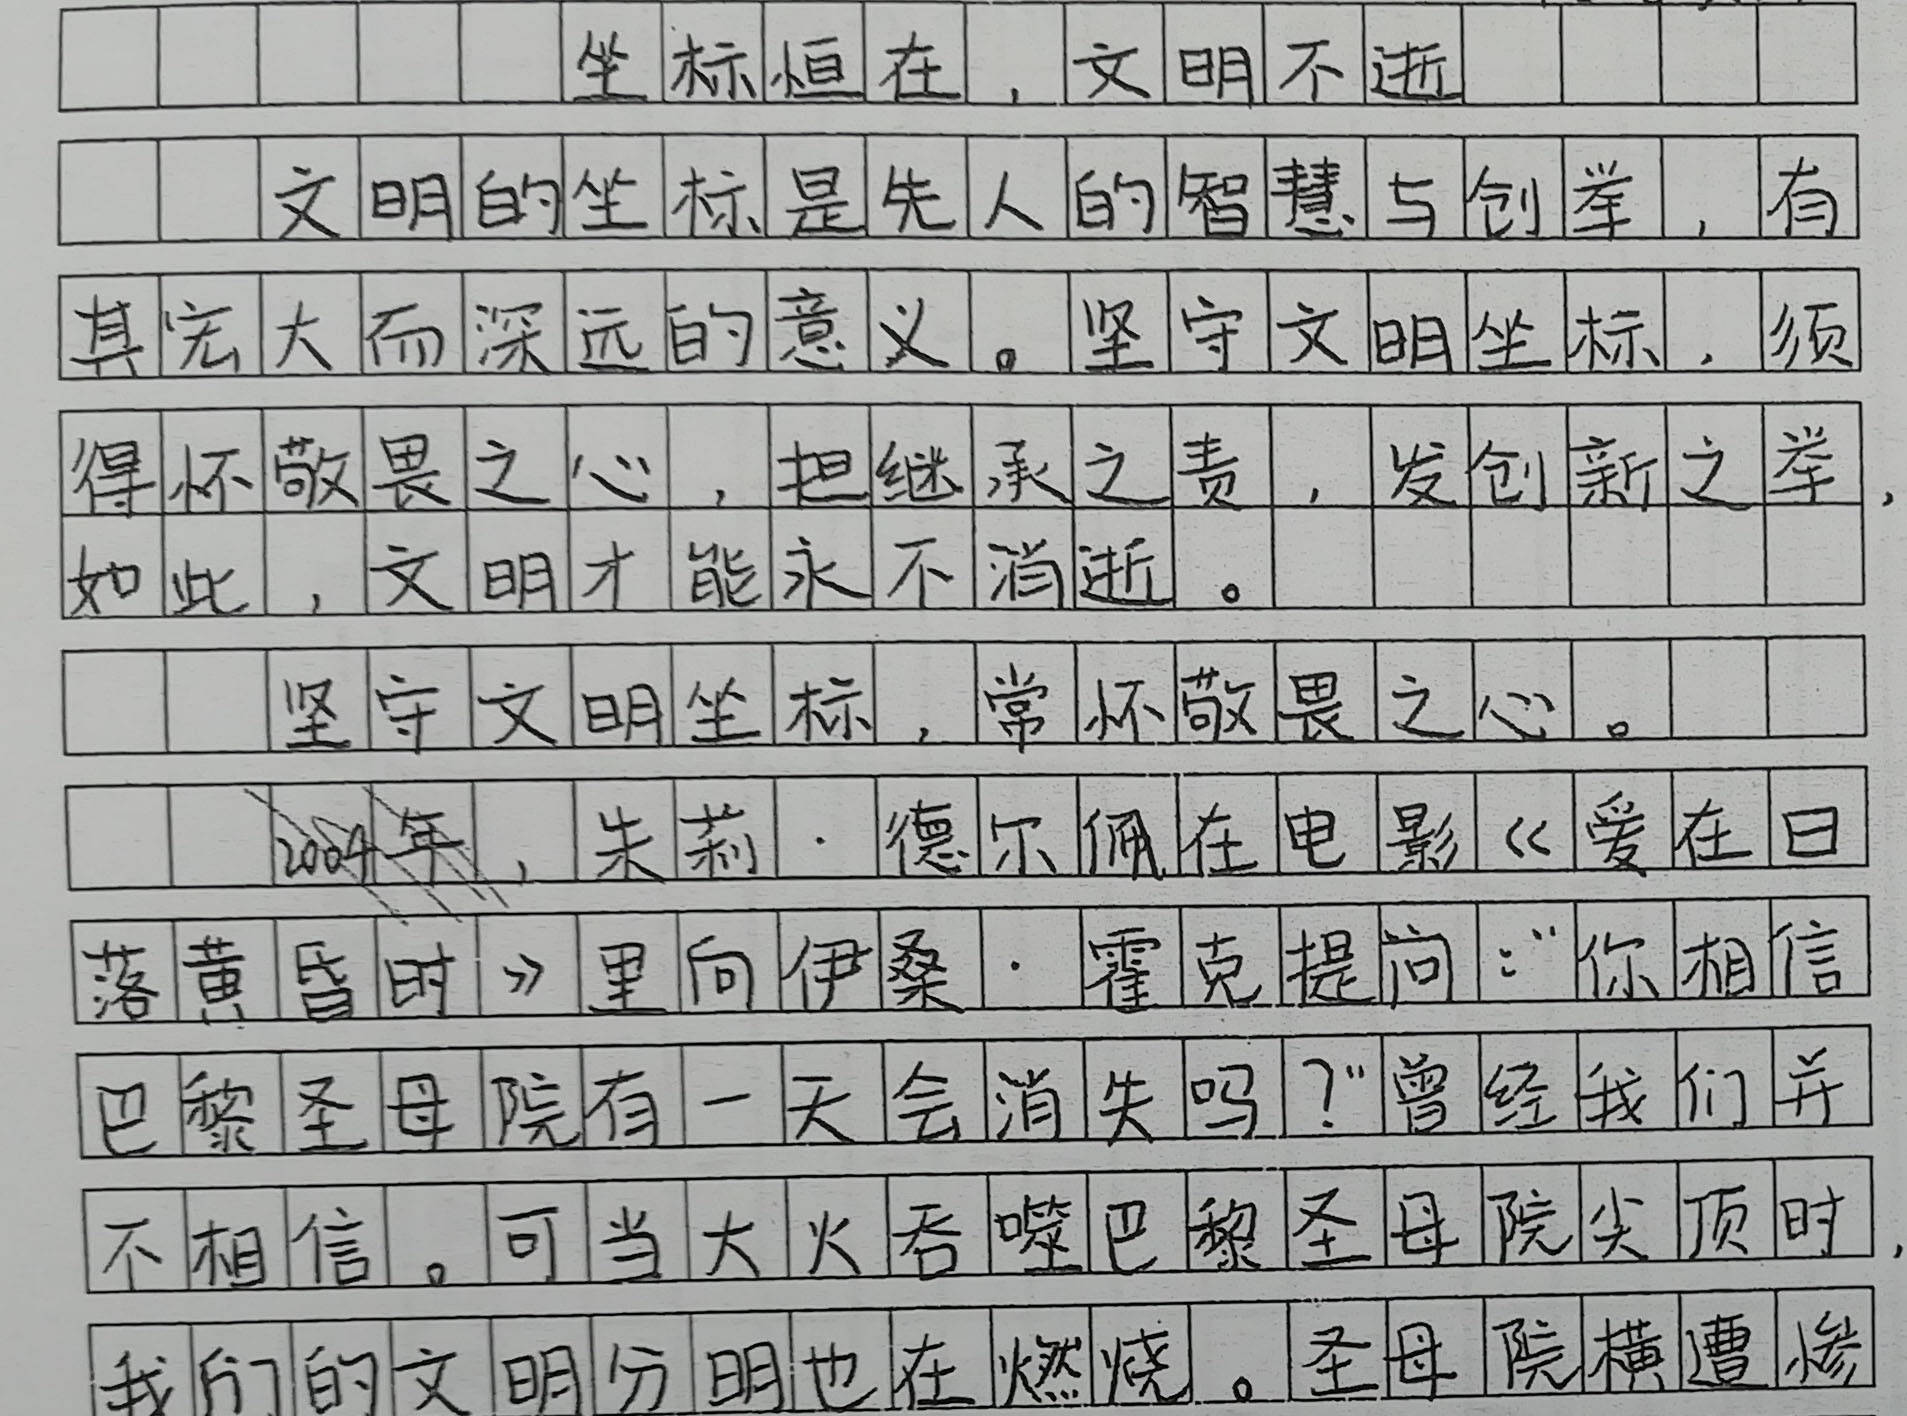 坐标恒在，文明不逝
文明的坐标是先人的智慧与创举，有
其宏大而深远的意义。坚守文明坐标，须
得怀敬畏之心，担继承之责，发创新之举，
如此，文明才能永不消逝。
坚守文明坐标，常怀敬畏之心。
2004年，朱莉·德尔佩在电影《爱在日
落黄昏时》里向伊桑·霍克提问：“你相信
巴黎圣母院有一天会消失吗？”曾经我们并
不相信。可当大火吞噬巴黎圣母院尖顶时，
我们的文明分明也在燃烧。圣母院横遭惨